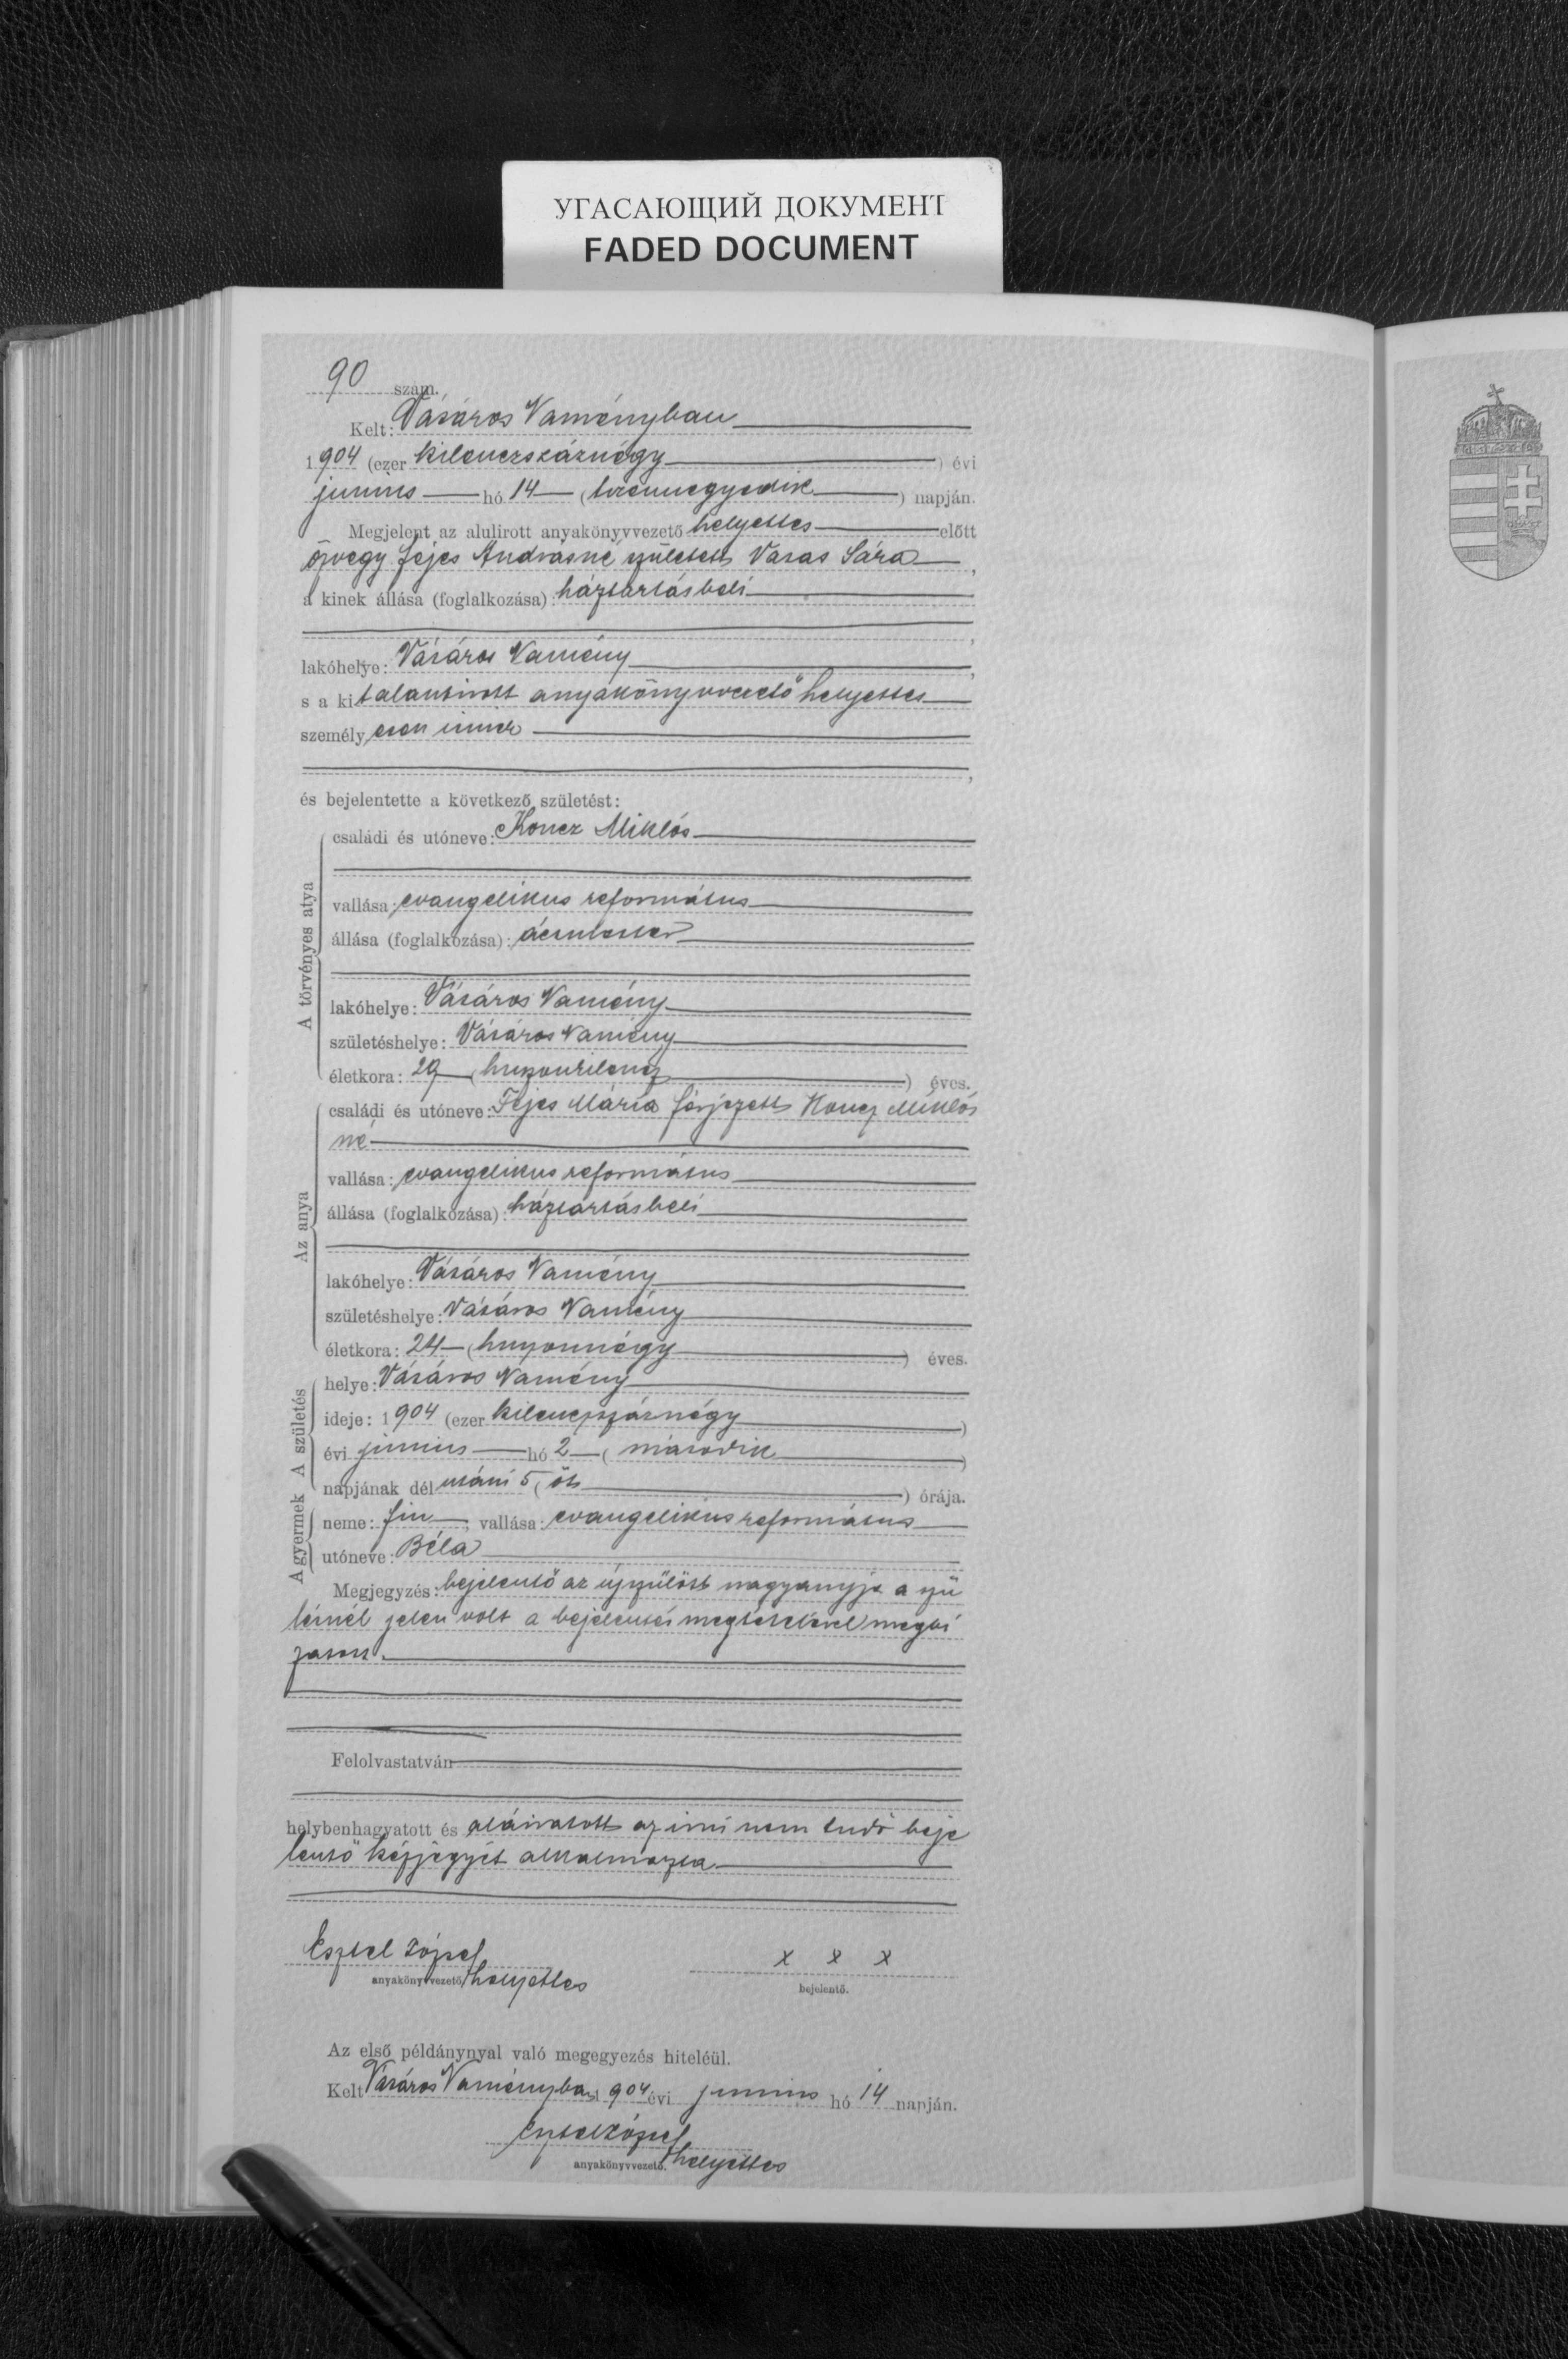 УГАСАЮЩИЙ ДОКУМЕНТ
FADED DOCUMENT
90 szám.
Kelt: Vásáros Naményban
1904 (ezer kilenczszáznégy) évi
junius hó 14 (tizennegyedik) napján.
Megjelent az alulirott anyakönyvvezető helyettes előtt
özvegy Fejes Andrásné született Vasas Sára,
a kinek állása (foglalkozása): háztartásbeli
,
lakóhelye: Vásáros Namény,
s a kit alantirott anyakönyvvezető helyettes
személyesen ismer
,
és bejelentette a következő születést:
A törvényes atya
családi és utóneve: Koncz Miklós
vallása: evangelikus református
állása (foglalkozása): ácsmester
lakóhelye: Vásáros Namény
születéshelye: Vásáros Namény
életkora: 29 (huszonkilencz) éves.
Az anya
családi és utóneve: Fejes Mária férjezett Koncz Miklós
né
vallása: evangelikus református
állása (foglalkozása): háztartásbeli
lakóhelye: Vásáros Namény
születéshelye: Vásáros Namény
életkora: 24 (huszonnégy) éves.
A születés
helye: Vásáros Namény
ideje: 1904 (ezer kilenczszáznégy)
évi junius hó 2 (második)
napjának délutáni 5 (öt) órája.
A gyermek
neme: fiu, vallása: evangelikus református
utóneve: Béla
Megjegyzés: bejelentő az újszülött nagyanyja a szü
lésnél jelen volt a bejelentés megtételével megbi
zatott.
Felolvastatván
helybenhagyatott és aláiratott az irni nem tudó beje
lentő kézjegyét alkalmazta
Esztel József
anyakönyvvezető helyettes
x x x
bejelentő.
Az első példánynyal való megegyezés hiteléül.
Kelt Vásáros Naményban 1904 évi junius hó 14 napján.
Esztel József
anyakönyvvezető. helyettes